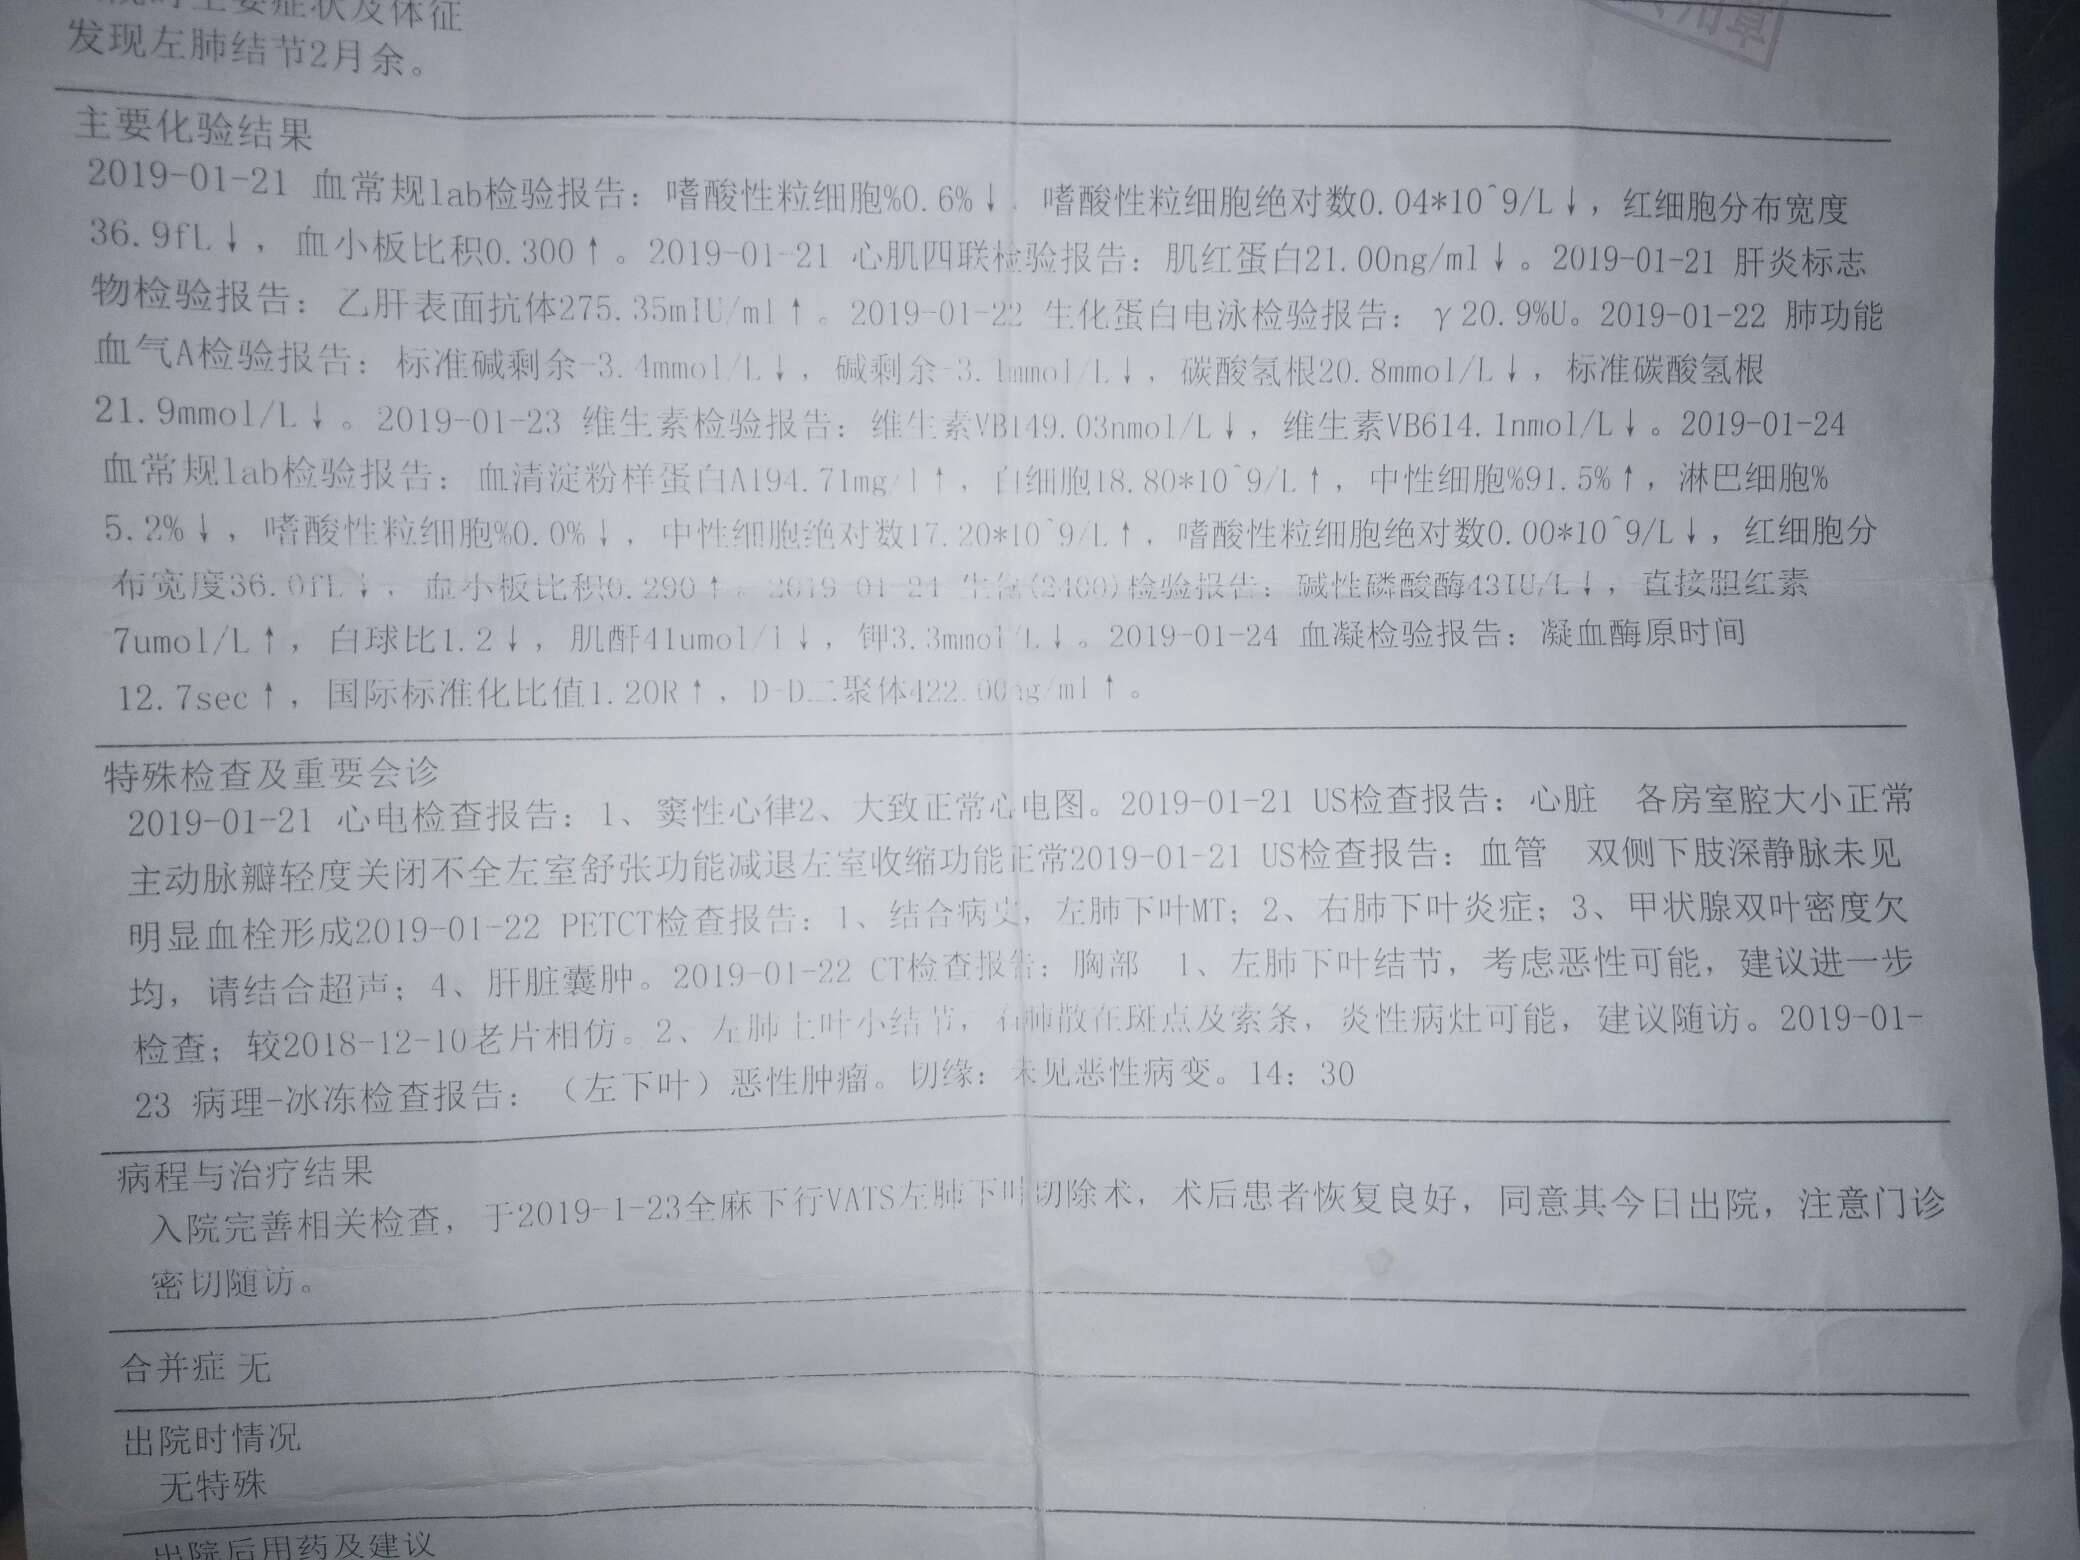 主要症状及体征
发现左肺结节2月余。
主要化验结果
2019-01-21 血常规lab检验报告：嗜酸性粒细胞%0.6%↓，嗜酸性粒细胞绝对数0.04*10^9/L↓，红细胞分布宽度
36.9fL↓，血小板比积0.300↑。2019-01-21 心肌四联检验报告：肌红蛋白21.00ng/ml↓。2019-01-21 肝炎标志
物检验报告：乙肝表面抗体275.35mIU/ml↑。2019-01-22 生化蛋白电泳检验报告：γ20.9%U。2019-01-22 肺功能
血气A检验报告：标准碱剩余-3.4mmol/L↓，碱剩余-3.1mmol/L↓，碳酸氢根20.8mmol/L↓，标准碳酸氢根
21.9mmol/L↓。2019-01-23 维生素检验报告：维生素VB149.03nmol/L↓，维生素VB614.1nmol/L↓。2019-01-24
血常规lab检验报告：血清淀粉样蛋白A194.71mg/l↑，白细胞18.80*10^9/L↑，中性细胞%91.5%↑，淋巴细胞%
5.2%↓，嗜酸性粒细胞%0.0%↓，中性细胞绝对数17.20*10^9/L↑，嗜酸性粒细胞绝对数0.00*10^9/L↓，红细胞分
布宽度36.0fL↓，血小板比积0.290↑。2019-01-24 生化(2400)检验报告：碱性磷酸酶43IU/L↓，直接胆红素
7umol/L↑，白球比1.2↓，肌酐41umol/l↓，钾3.3mmol/L↓。2019-01-24 血凝检验报告：凝血酶原时间
12.7sec↑，国际标准化比值1.20R↑，D-D二聚体422.00ng/ml↑。
特殊检查及重要会诊
2019-01-21 心电检查报告：1、窦性心律2、大致正常心电图。2019-01-21 US检查报告：心脏 各房室腔大小正常
主动脉瓣轻度关闭不全左室舒张功能减退左室收缩功能正常2019-01-21 US检查报告：血管 双侧下肢深静脉未见
明显血栓形成2019-01-22 PETCT检查报告：1、结合病史，左肺下叶MT；2、右肺下叶炎症；3、甲状腺双叶密度欠
均，请结合超声；4、肝脏囊肿。2019-01-22 CT检查报告：胸部 1、左肺下叶结节，考虑恶性可能，建议进一步
检查；较2018-12-10老片相仿。2、左肺上叶小结节，右肺散在斑点及索条，炎性病灶可能，建议随访。2019-01-
23 病理-冰冻检查报告：（左下叶）恶性肿瘤。切缘：未见恶性病变。14：30
病程与治疗结果
入院完善相关检查，于2019-1-23全麻下行VATS左肺下叶切除术，术后患者恢复良好，同意其今日出院，注意门诊
密切随访。
合并症 无
出院时情况
无特殊
出院后用药及建议